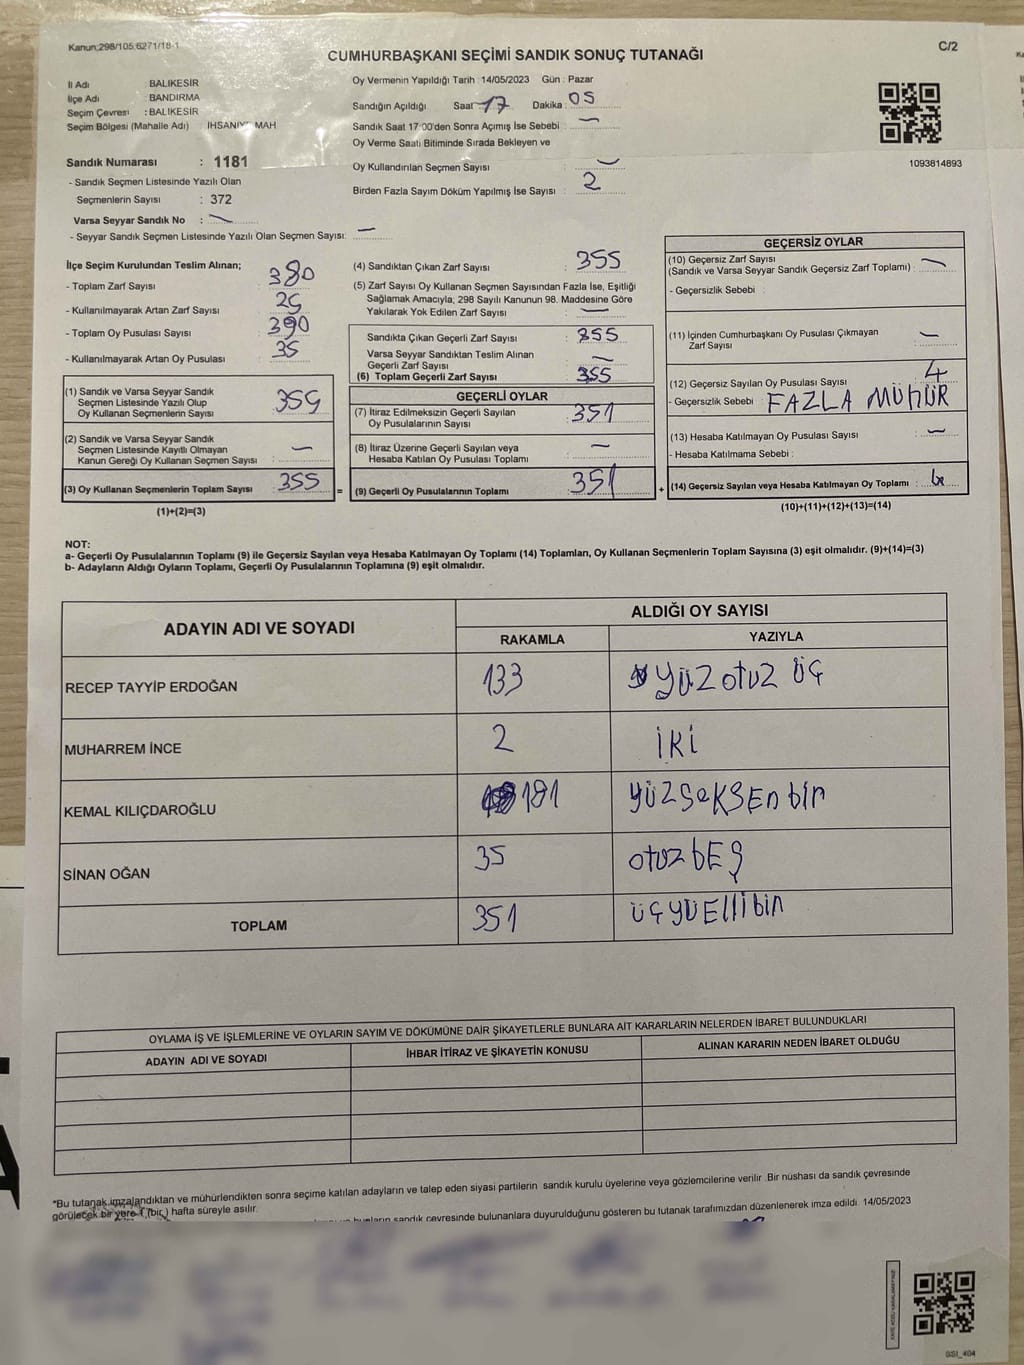 Kanun:298/105;6271/18-1
C/2
CUMHURBAŞKANI SEÇİMİ SANDIK SONUÇ TUTANAĞI
İl Adı BALIKESİR
İlçe Adı BANDIRMA
Seçim Çevresi : BALIKESİR
Seçim Bölgesi (Mahalle Adı) : İHSANİYE MAH
Oy Vermenin Yapıldığı Tarih : 14/05/2023 Gün : Pazar
Sandığın Açıldığı Saat 17 Dakika : 05
Sandık Saat 17:00'den Sonra Açımış İse Sebebi : —
Oy Verme Saati Bitiminde Sırada Bekleyen ve
Oy Kullandırılan Seçmen Sayısı : —
Birden Fazla Sayım Döküm Yapılmış İse Sayısı : 2
1093814893
Sandık Numarası : 1181
- Sandık Seçmen Listesinde Yazılı Olan
Seçmenlerin Sayısı : 372
Varsa Seyyar Sandık No : —
- Seyyar Sandık Seçmen Listesinde Yazılı Olan Seçmen Sayısı: —
İlçe Seçim Kurulundan Teslim Alınan;
- Toplam Zarf Sayısı : 380
- Kullanılmayarak Artan Zarf Sayısı : 25
- Toplam Oy Pusulası Sayısı : 390
- Kullanılmayarak Artan Oy Pusulası : 35
(1) Sandık ve Varsa Seyyar Sandık
Seçmen Listesinde Yazılı Olup
Oy Kullanan Seçmenlerin Sayısı : 355
(2) Sandık ve Varsa Seyyar Sandık
Seçmen Listesinde Kayıtlı Olmayan
Kanun Gereği Oy Kullanan Seçmen Sayısı : —
(3) Oy Kullanan Seçmenlerin Toplam Sayısı : 355
(1)+(2)=(3)
(4) Sandıktan Çıkan Zarf Sayısı : 355
(5) Zarf Sayısı Oy Kullanan Seçmen Sayısından Fazla İse, Eşitliği
Sağlamak Amacıyla; 298 Sayılı Kanunun 98. Maddesine Göre
Yakılarak Yok Edilen Zarf Sayısı : —
Sandıkta Çıkan Geçerli Zarf Sayısı : 355
Varsa Seyyar Sandıktan Teslim Alınan
Geçerli Zarf Sayısı : —
(6) Toplam Geçerli Zarf Sayısı : 355
GEÇERLİ OYLAR
(7) İtiraz Edilmeksizin Geçerli Sayılan
Oy Pusulalarının Sayısı : 351
(8) İtiraz Üzerine Geçerli Sayılan veya
Hesaba Katılan Oy Pusulası Toplamı : —
= (9) Geçerli Oy Pusulalarının Toplamı : 351
GEÇERSİZ OYLAR
(10) Geçersiz Zarf Sayısı
(Sandık ve Varsa Seyyar Sandık Geçersiz Zarf Toplamı) : —
- Geçersizlik Sebebi :
(11) İçinden Cumhurbaşkanı Oy Pusulası Çıkmayan
Zarf Sayısı : —
(12) Geçersiz Sayılan Oy Pusulası Sayısı : 4
- Geçersizlik Sebebi : FAZLA MÜHÜR
(13) Hesaba Katılmayan Oy Pusulası Sayısı : —
- Hesaba Katılmama Sebebi :
+ (14) Geçersiz Sayılan veya Hesaba Katılmayan Oy Toplamı : 4
(10)+(11)+(12)+(13)=(14)
NOT:
a- Geçerli Oy Pusulalarının Toplamı (9) ile Geçersiz Sayılan veya Hesaba Katılmayan Oy Toplamı (14) Toplamları, Oy Kullanan Seçmenlerin Toplam Sayısına (3) eşit olmalıdır. (9)+(14)=(3)
b- Adayların Aldığı Oyların Toplamı, Geçerli Oy Pusulalarının Toplamına (9) eşit olmalıdır.
ADAYIN ADI VE SOYADI ALDIĞI OY SAYISI
RAKAMLA YAZIYLA
RECEP TAYYİP ERDOĞAN 133 YÜZ otuz üç
MUHARREM İNCE 2 İKİ
KEMAL KILIÇDAROĞLU 181 YÜZSEKSEN bir
SİNAN OĞAN 35 otuz bEŞ
TOPLAM 351 üçyüEllibir
OYLAMA İŞ VE İŞLEMLERİNE VE OYLARIN SAYIM VE DÖKÜMÜNE DAİR ŞİKAYETLERLE BUNLARA AİT KARARLARIN NELERDEN İBARET BULUNDUKLARI
ADAYIN ADI VE SOYADI İHBAR İTİRAZ VE ŞİKAYETİN KONUSU ALINAN KARARIN NEDEN İBARET OLDUĞU
*Bu tutanak imzalandıktan ve mühürlendikten sonra seçime katılan adayların ve talep eden siyasi partilerin sandık kurulu üyelerine veya gözlemcilerine verilir. Bir nüshası da sandık çevresinde
görülecek bir yere 1 (bir) hafta süreyle asılır.
bunların sandık çevresinde bulunanlara duyurulduğunu gösteren bu tutanak tarafımızdan düzenlenerek imza edildi. 14/05/2023
GSI_404